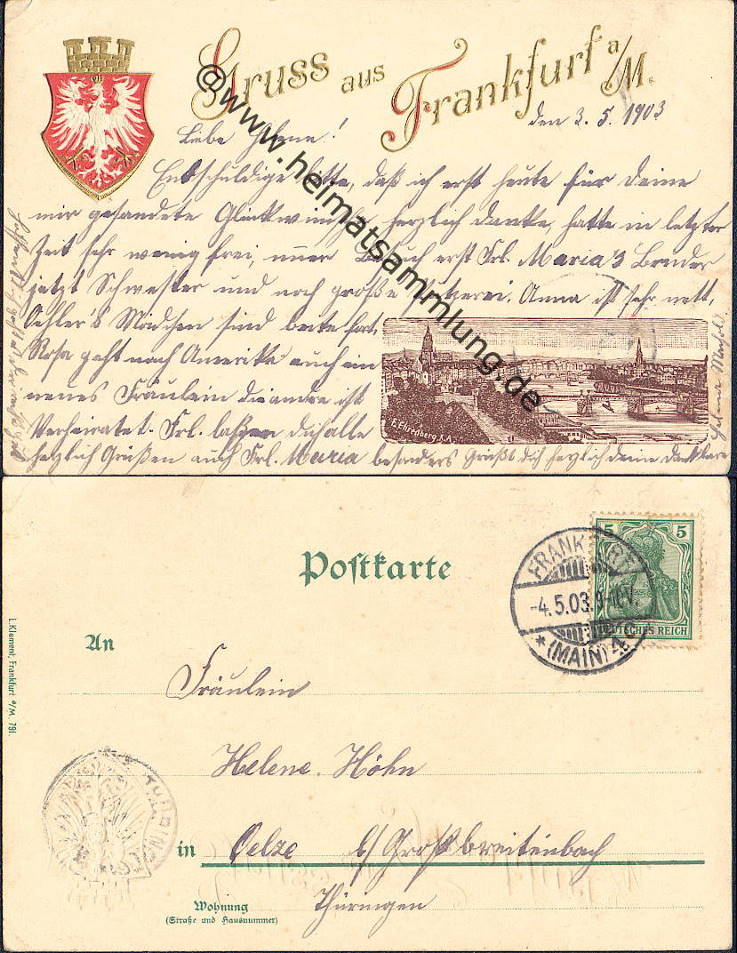 Gruss aus Frankfurt a/M.
den 3. 5. 1903
Liebe Helene!
Entschuldige bitte, daß ich erst heute für Deine
mir gesandete Glückwunsch herzlich danke, hatte in letzter
Zeit sehr wenig frei, immer Besuch erst Frl. Maria's Bruder
jetzt Schwester und noch große Putzerei. Anna ist sehr nett,
Oehler's Mädchen sind beite fort,
Rosa geht nach Amerika auch ein
neues Fräulein die andre ist
Verheiratet. Frl. laßen dich alle
herzlich Grüßen auch Frl. Maria besonders Grüßt dich herzlich deine Dankbare
E. Ehrenberg
@www.heimatsammlung.de
Postkarte
5
DEUTSCHES REICH
FRANKFURT
-4.5.03.9-10V.
* (MAIN) 4
An
Fräulein
Helene Höhn
in Oelze b/ Großbreitenbach
Thüringen
Wohnung
(Straße und Hausnummer)
L. Klement, Frankfurt a/M. 791.